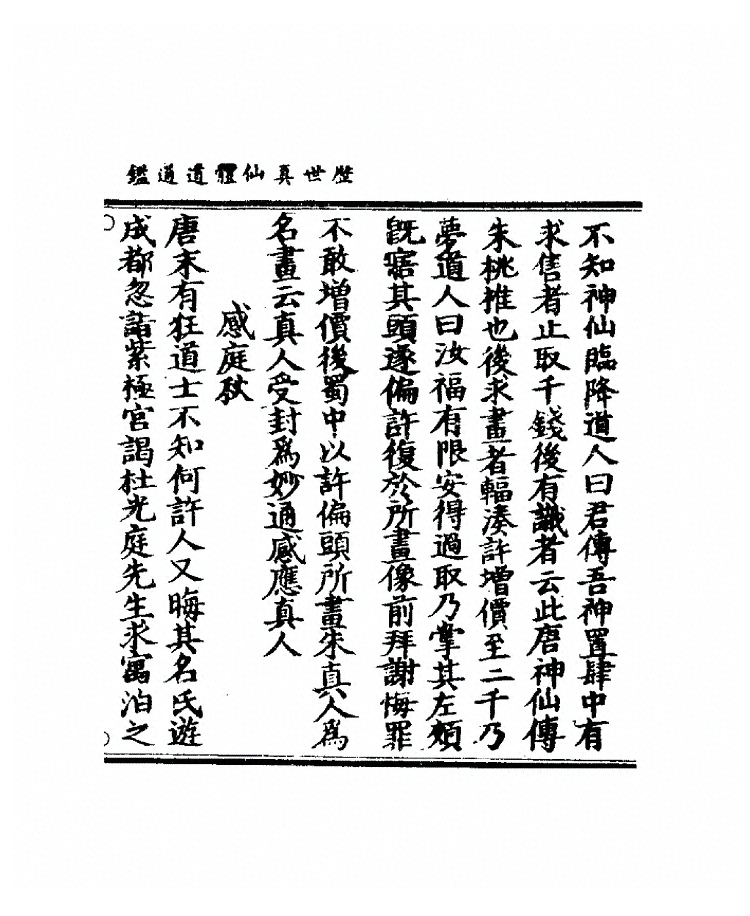 歷世真仙體道通鑑
不知神仙臨降道人曰君傳吾神置肆中有
求售者止取千錢後有識者云此唐神仙傳
朱桃推也後求畫者輻湊許增價至二千乃
夢道人曰汝福有限安得過取乃掌其左頰
旣寤其頭遂偏許復於所畫像前拜謝悔罪
不敢增價後蜀中以許偏頭所畫朱真人爲
名畫云真人受封爲妙通感應真人
感庭秋
唐末有狂道士不知何許人又晦其名氏遊
成都忽詣紫極宮謁杜光庭先生求寓泊之